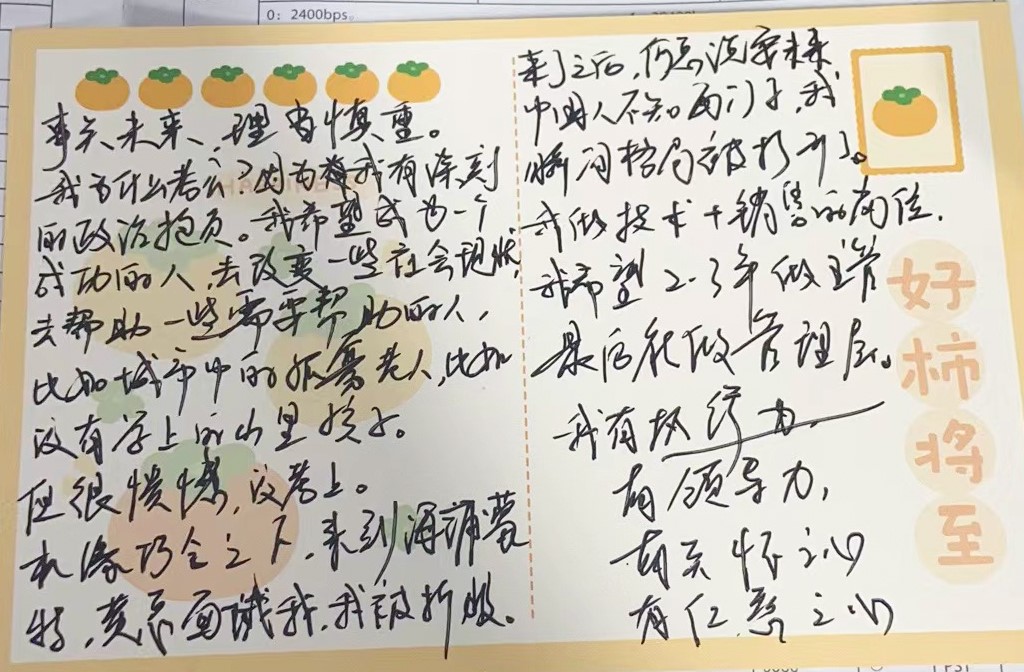 0: 2400bps.
事关未来，理当慎重。
我为什么考公？因为我有深刻
的政治抱负。我希望成为一个
成功的人，去改变一些社会现状，
去帮助一些需要帮助的人，
比如城市中的孤寡老人，比如
没有学上的山里孩子。
但很惭愧，没考上。
机缘巧合之下，来到海浦蒙
特，黄总面试我，我被折服。
来了之后，何总说要未来
中国人不知西门子，我
瞬间格局被打开了。
我做技术+销售的岗位，
我希望2-3年做主管
最后能做管理层。
我有执行力，
有领导力，
有关怀之心
有仁慈之心
好柿将至